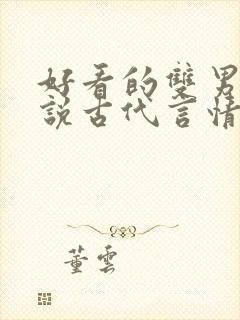 好看的雙男
說古代言情
董雲